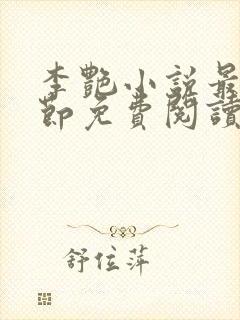 李艷小說最
節免費閱讀
舒位萍